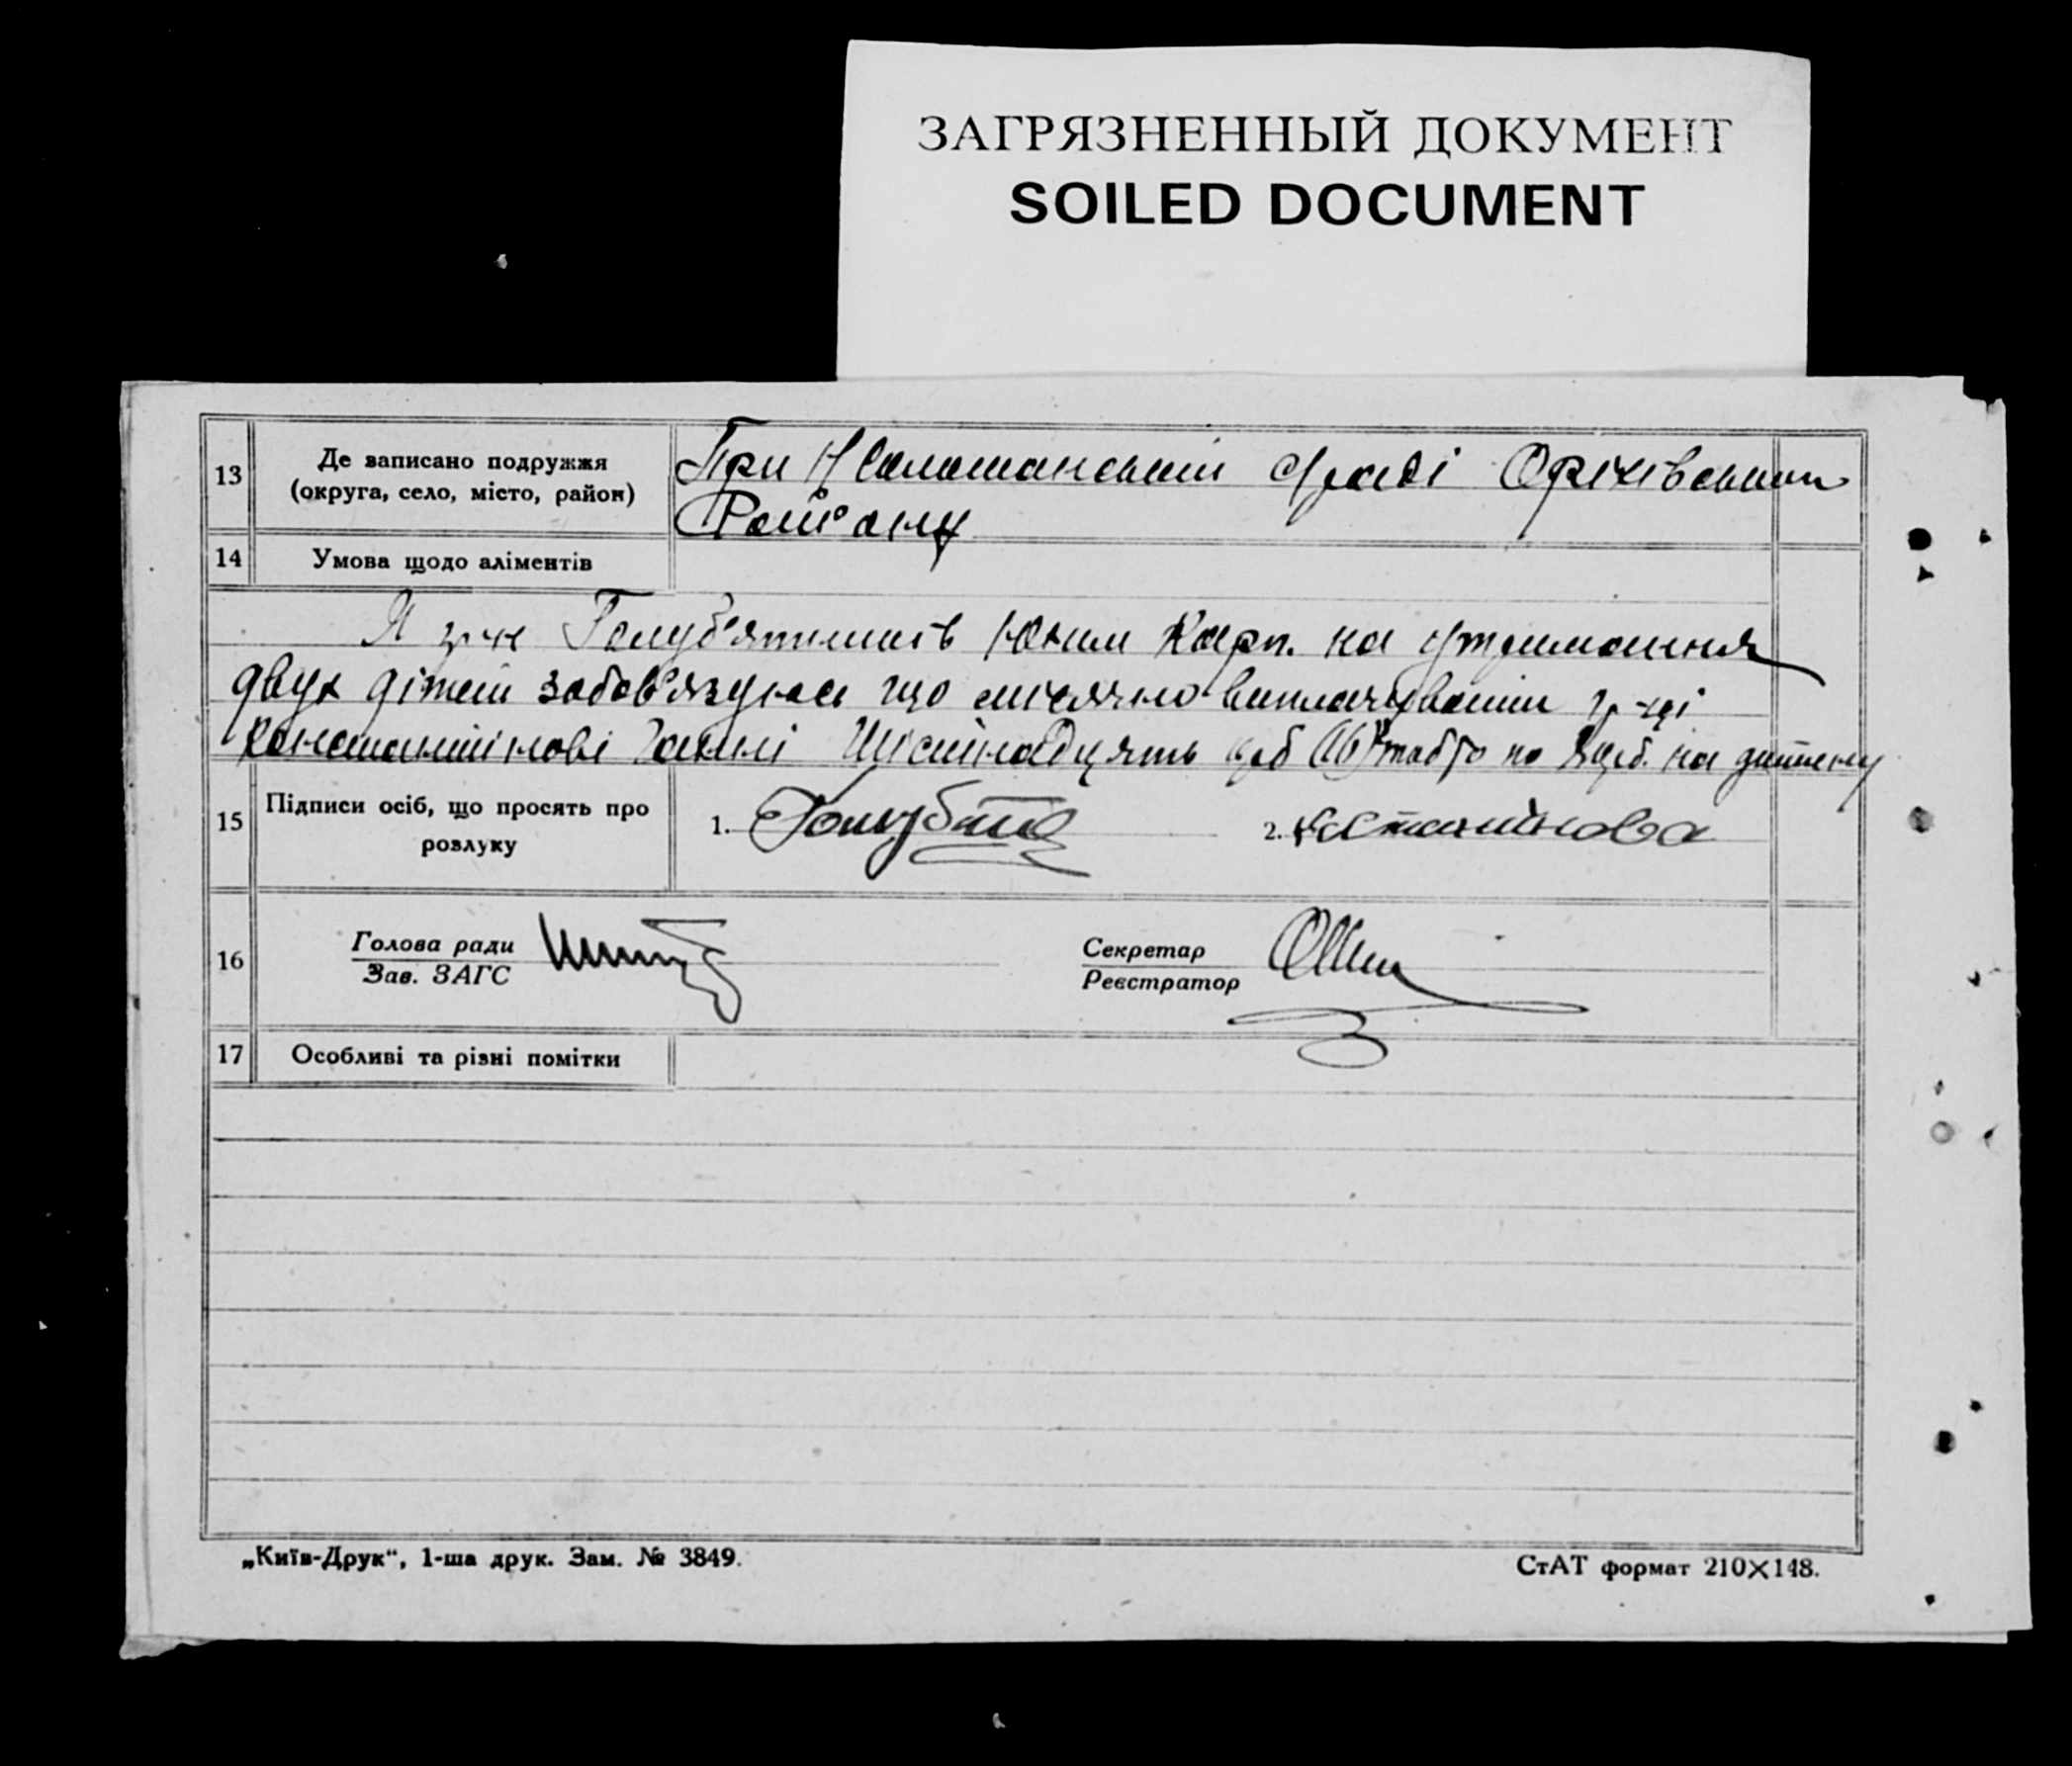 ЗАГРЯЗНЕННЫЙ ДОКУМЕНТ
SOILED DOCUMENT
13
Де записано подружжя
(округа, село, місто, район)
При сраді Оріхівськом
Району
14
Умова щодо аліментів
Я гр-н Карп. на утримання
двух дітей забов'язуюсь що місячно виплачувати гр-ці
Константіновій Ганні Шіснадцять руб (16) тобто по 8 руб. на дитину
15
Підписи осіб, що просять про
розлуку
1.
2.
16
Голова ради
Зав. ЗАГС
Секретар
Реєстратор
17
Особливі та різні помітки
„Київ-Друк“, 1-ша друк. Зам. № 3849.
СтАТ формат 210×148.